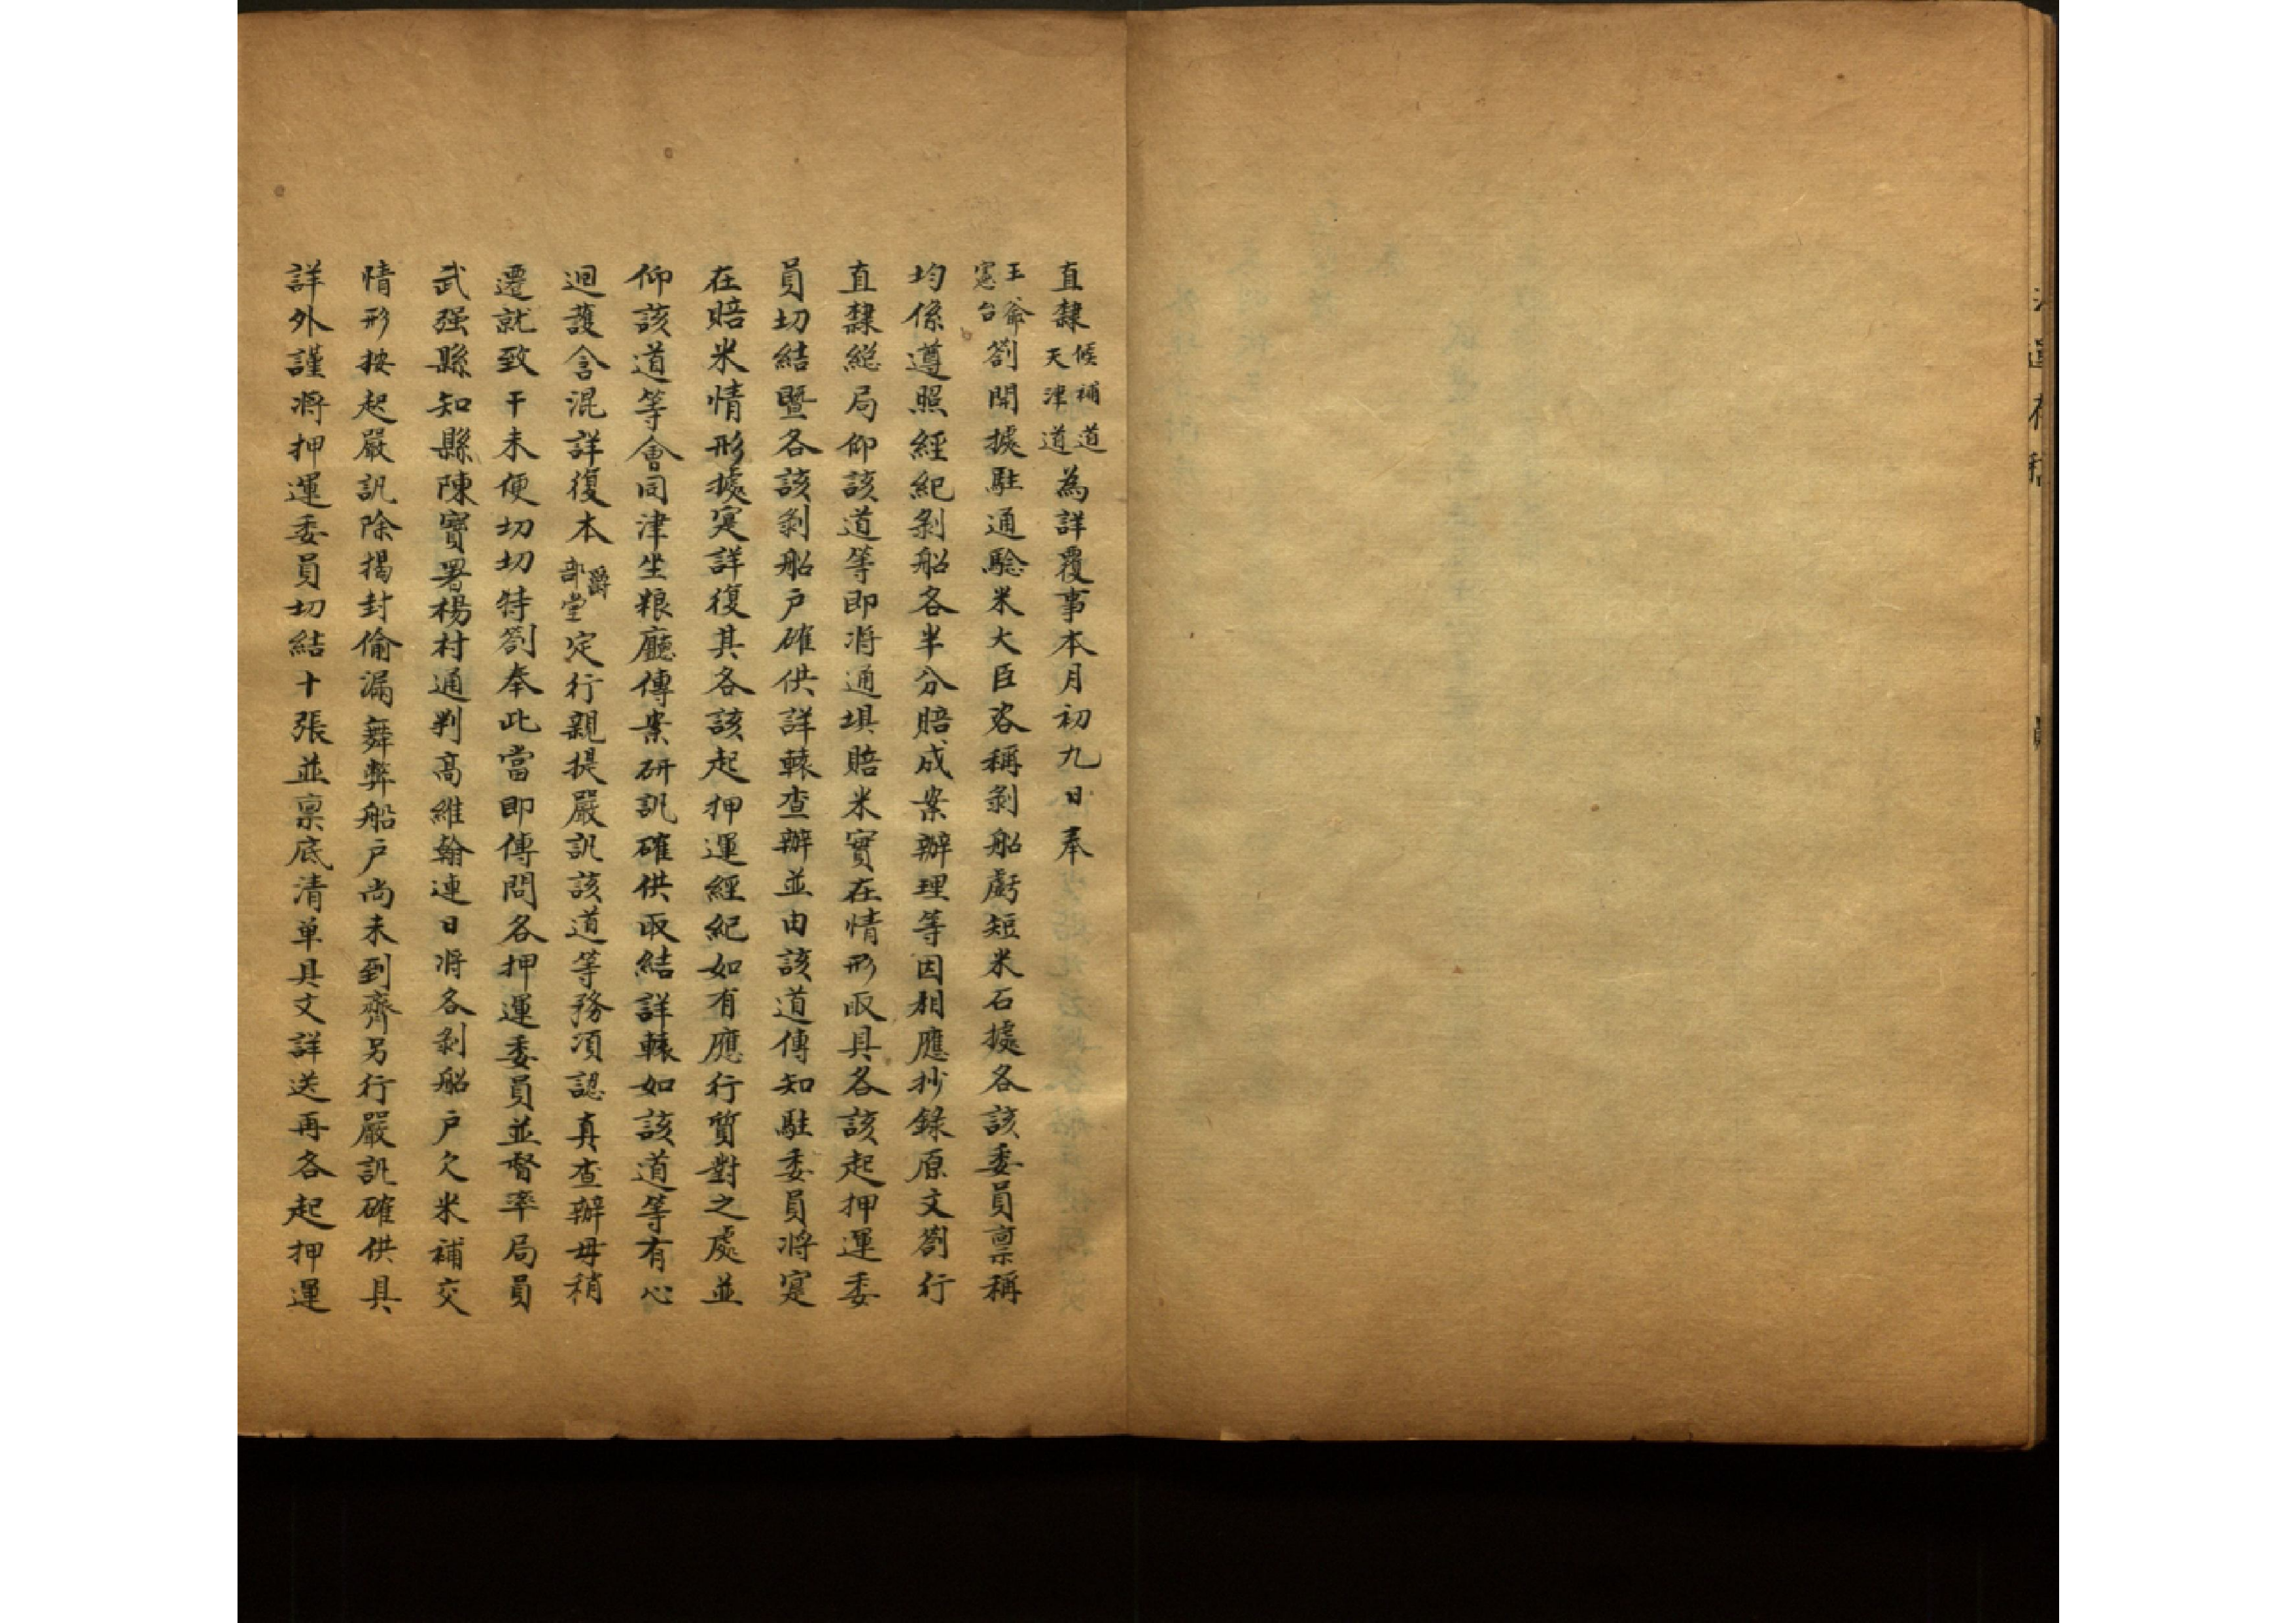 直隸候補道天津道為詳覆事本月初九日奉
王爺憲台劄開據駐通驗米大臣咨稱剝船虧短米石據各該委員禀稱
均係遵照經紀剝船各半分賠成案辦理等因相應抄錄原文劄行
直隸總局仰該道等即将通埧賠米實在情形取具各該起押運委
員切結暨各該剝船户確供詳轅查辦並由該道傳知駐委員将寔
在賠米情形據寔詳復其各該起押運經紀如有應行質對之處並
仰該道等會同津坐粮廳傳案研訊確供取結詳轅如該道等有心
迴護含混詳復本爵部堂定行親提嚴訊該道等務湏認真查辦毋稍
遷就致干未便切切特劄奉此當即傳問各押運委員並督率局員
武强縣知縣陳寳署楊村通判高維翰連日将各剝船户欠米補交
情形按起嚴訊除揭封偷漏舞弊船户尚未到齊另行嚴訊確供具
詳外謹将押運委員切結十張並禀底清单具文詳送再各起押運